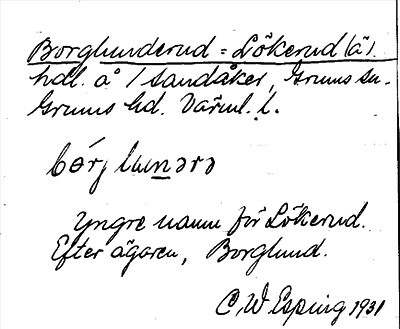 Borglunderud = Lökerud (ä).
hdl. å / Sandåker, Grums sn.
Grums hd. Värml. l.
Yngre namn för Lökerud.
Efter ägaren, Borglund.
C W Esping 1931